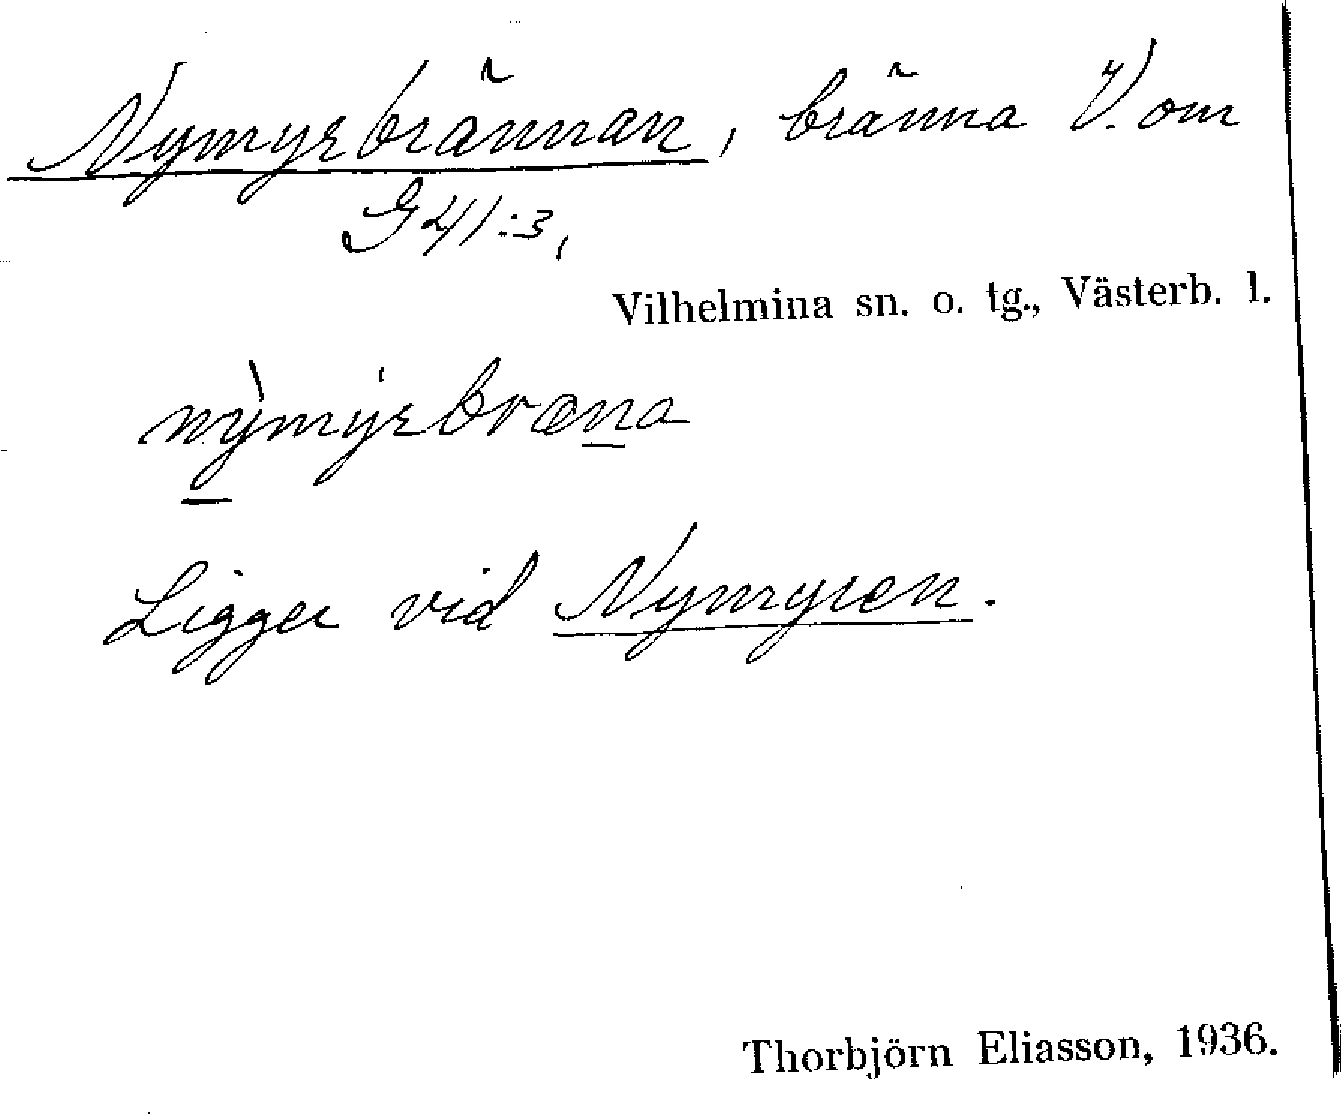 Nymyrbrännan, bränna V. om
G 41:3,
Vilhelmina sn. o. tg., Västerb. l.
nỳmy̍rbræna
Ligger vid Nymyren.
Thorbjörn Eliasson, 1936.